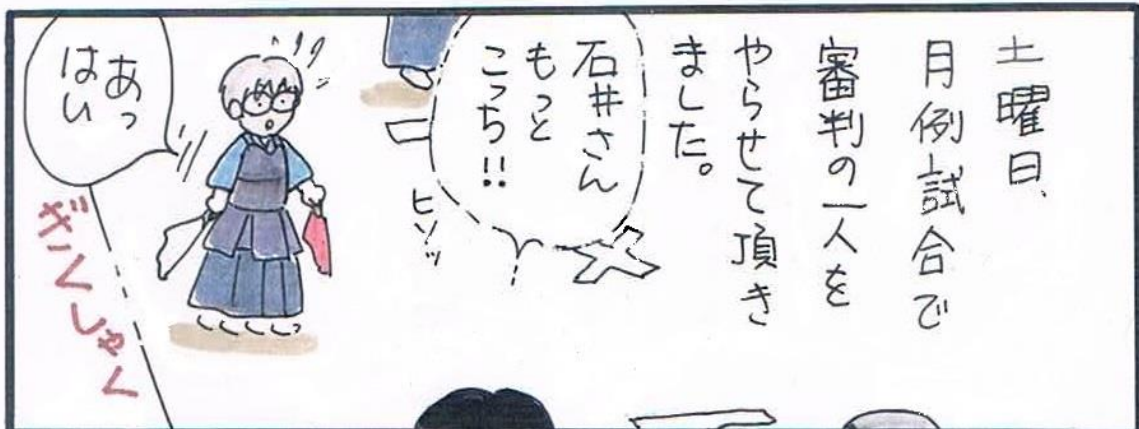 土曜日、
月例試合で
審判の一人を
やらせて頂き
ました。
石井さん
もっと
こっち!!
ヒソッ
あっ
はい
ぎくしゃく